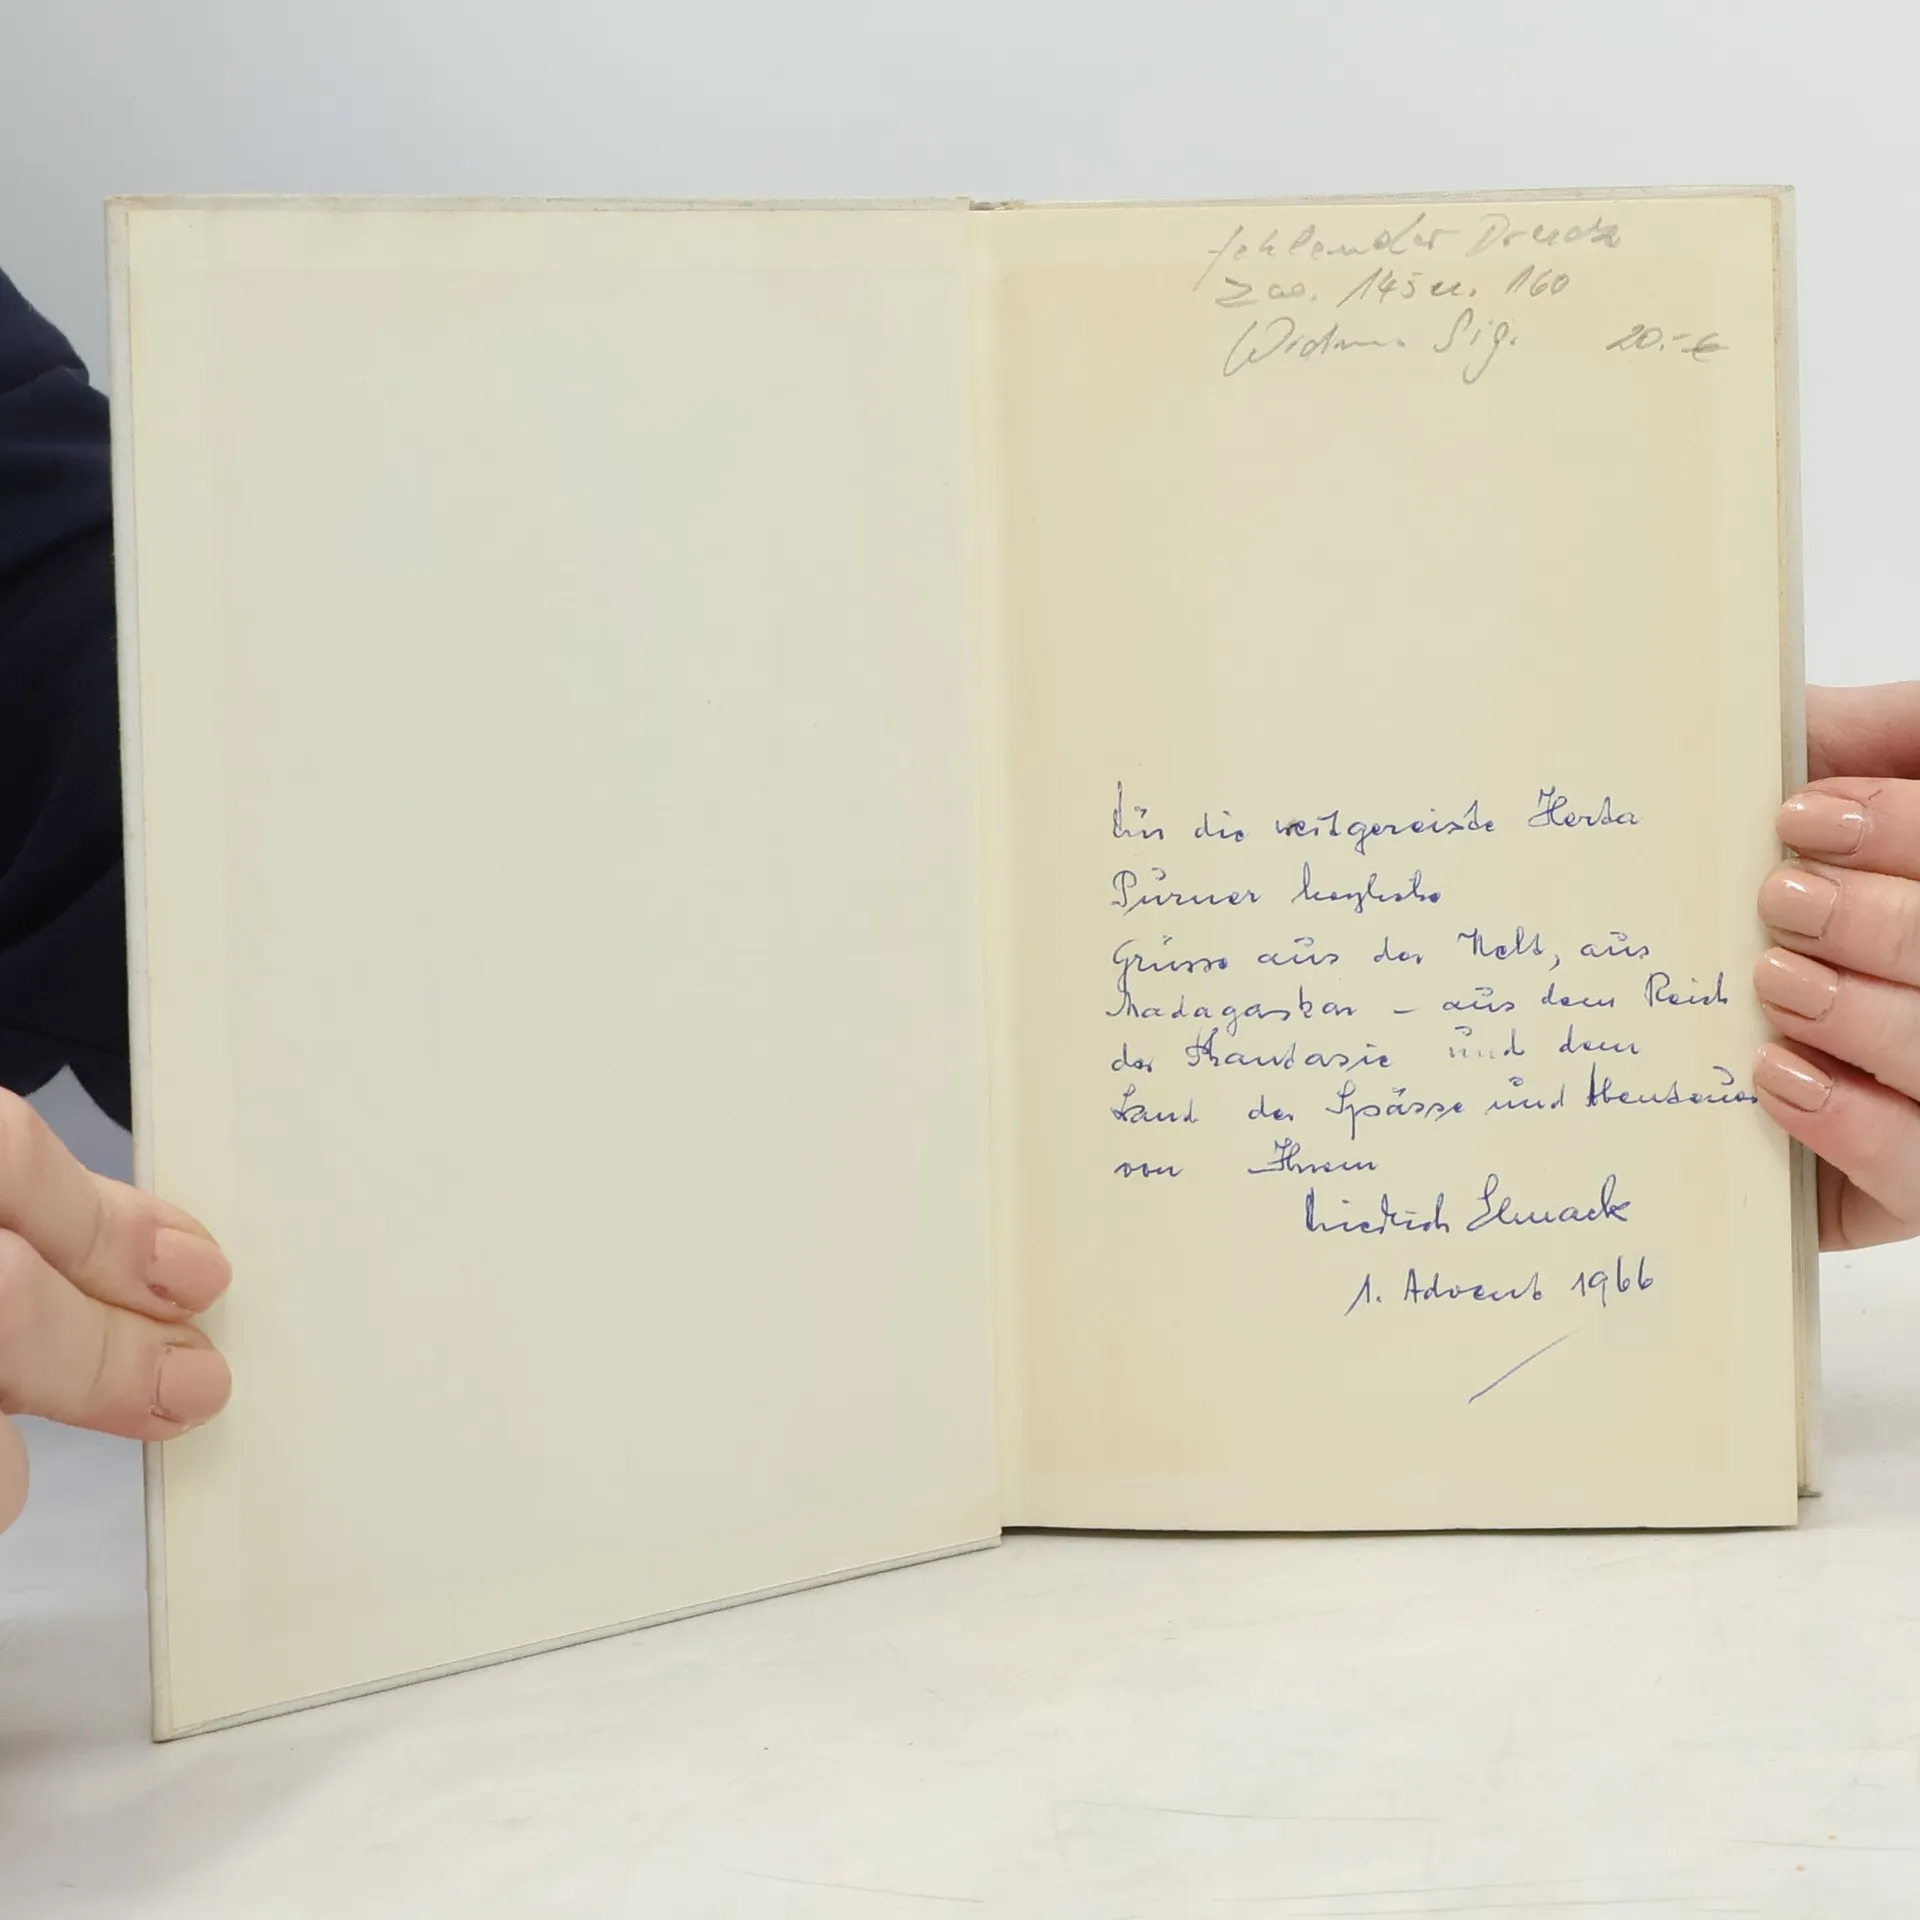 fehlender Druck
zw. 145 u. 160
Widm. Sig. 20.-€
Für die weitgereiste Herta
Pürner herzliche
Grüsse aus der Welt, aus
Madagaskar – aus dem Reich
der Phantasie und dem
Land der Spässe und Abenteuer
von Ihrem
Friedrich
1. Advent 1966